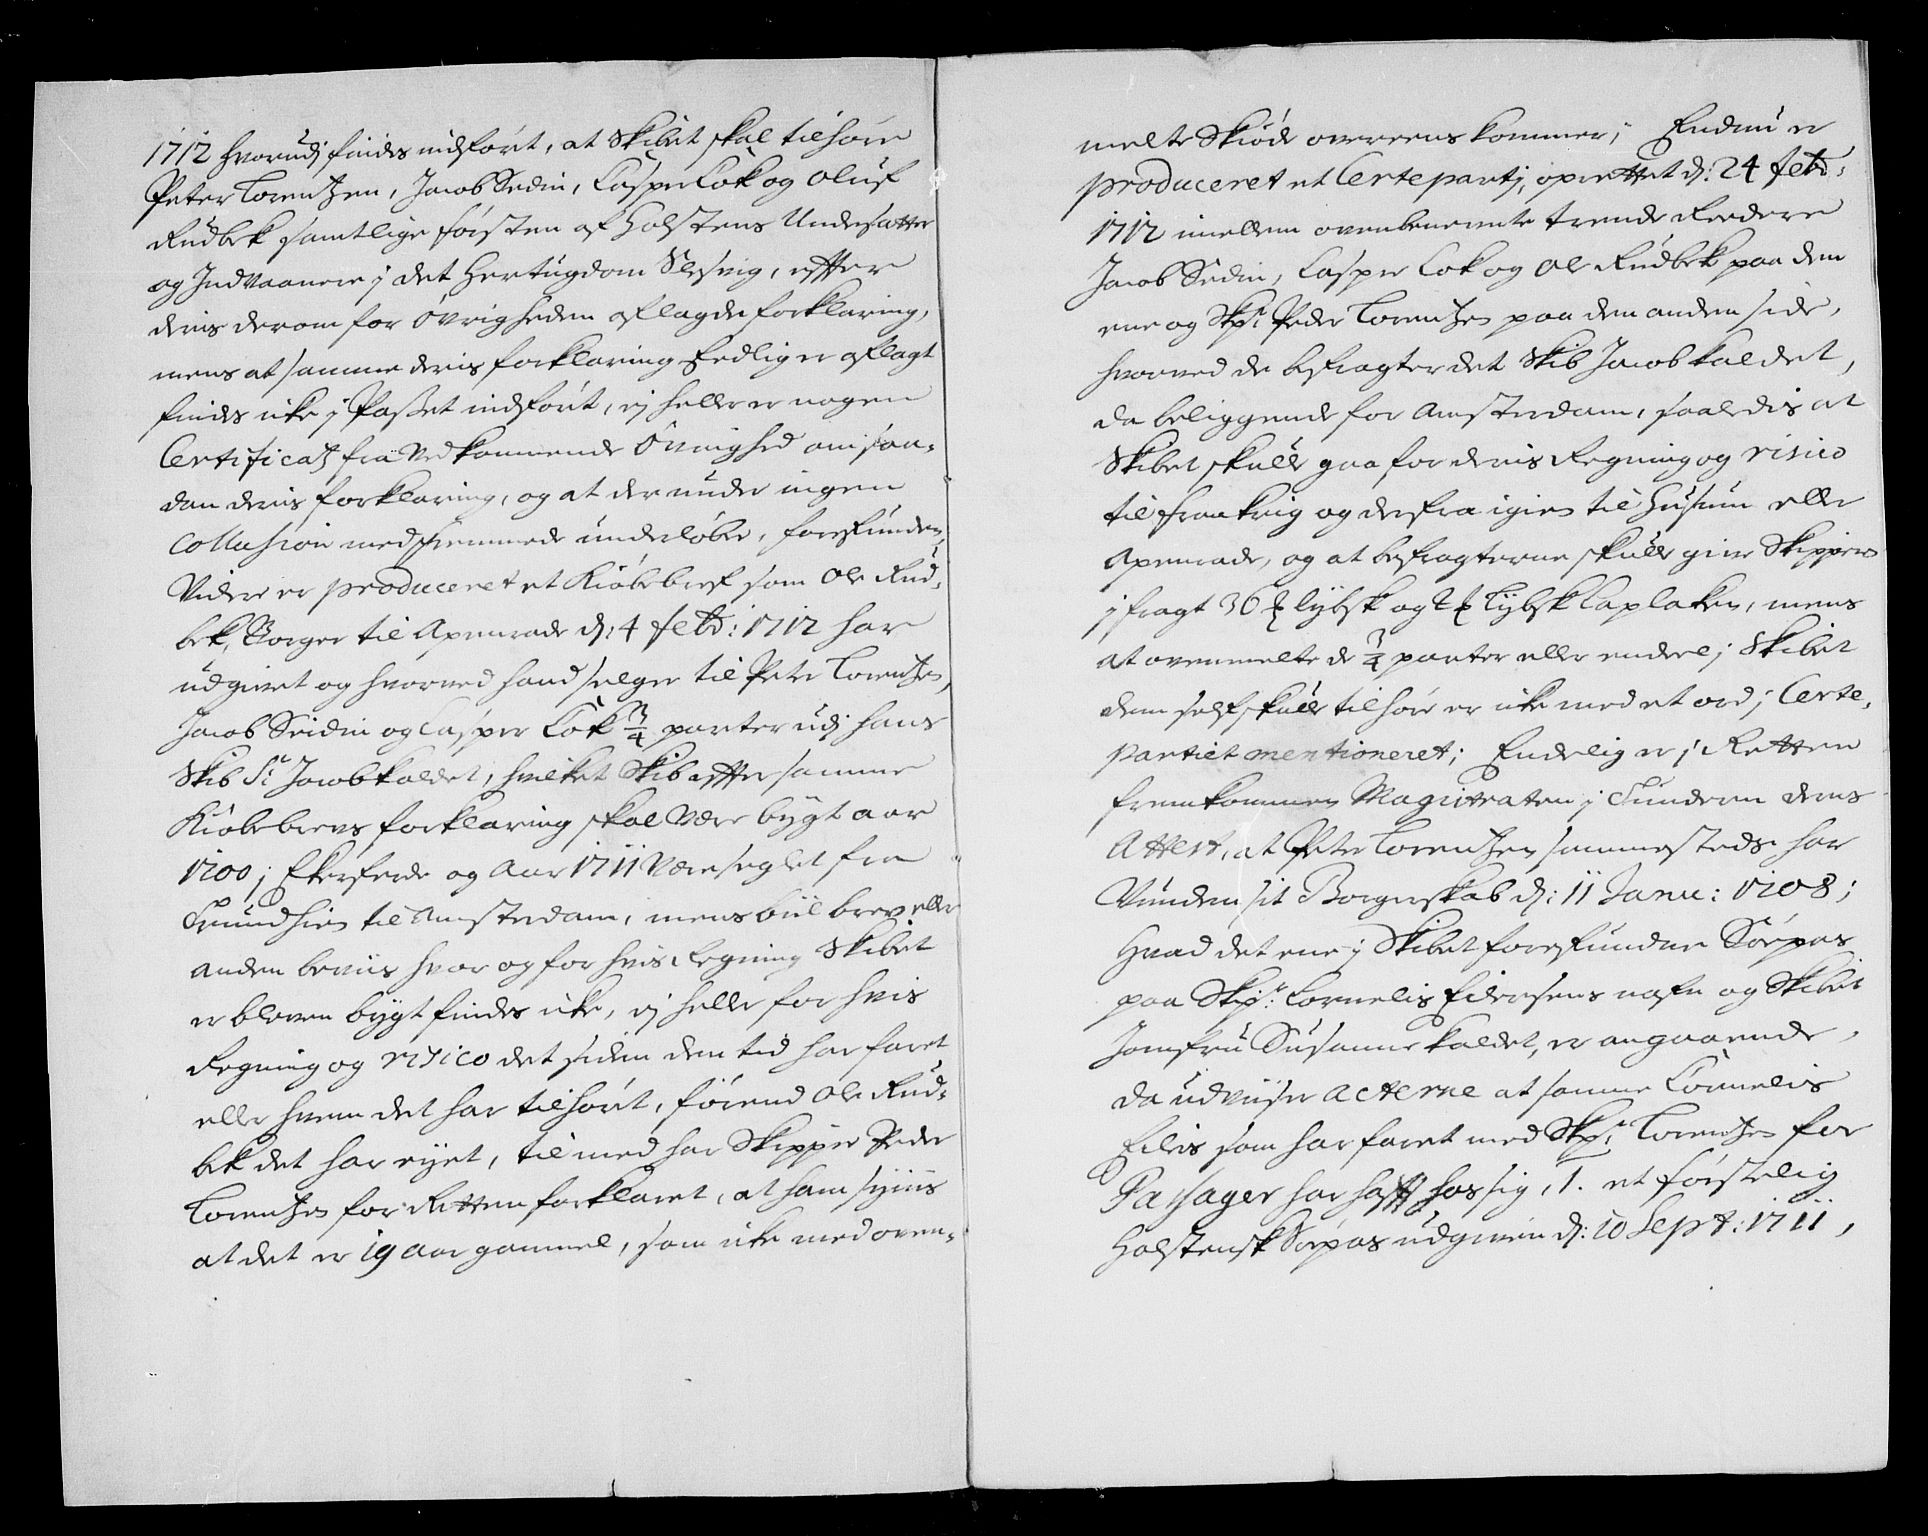 1712 hvorudj findes indført, at Skibet skal tilhøre
Peter Lorentzen, Jacob Sedin, Casper Lok og Oluf
Rudbek samtlige Førsten af Holstens Undersatter
og Indvaanere j det Hertugdom Slesvig, effter
deris derom for Øvrigheden aflagde forklaring,
mens at samme deris forklaring Eedlig er aflagt
findes icke j Passet indført, ej heller er nogen
Certificatz fra Vedkommende Øvrighed om saa-
dan deris forklaring, og at derunder ingen
Collusion med fremmede underløber, forefunden,
Videre er produceret et Kiøbebref som Ole Rud-
bek, Borger til Apenrade d: 4 Febr: 1712 har
udgivet og hvorved hand selger til Peter Lorentzen,
Jacob Seidin og Casper Lok 3/4 parter udj hans
Skib St Jacob kaldet, hvilket Skib effter samme
Kiøbebrevs forklaring skal være bygt aar
1700 j Ekerferde og Aar 1711 være seglet fra
Trundhiem til Amsterdam, mens biilbrev eller
anden beviis hvor og for hvis Regning Skibet
er bleven bygt findes icke, ej heller for hvis
Regning og risico det siden den tid har faret
eller hvem det har tilhørt, førend Ole Rud-
bek det har eyet, til med har Skipper Peder
Lorentzen for Retten forklaret, at ham syniis
at det er 19 aar gammel, som icke med oven-
melte Skiøde overeenskommer; Endnu er
produceret et Certepartj, oprettet d: 24 Febr:
1712 imellem ovenbenevnte trende Reedere
Jacob Sedin, Casper Lok og Ole Rudbek paa den
ene og Skpr Peder Lorentzen paa den anden side,
hvorved de befragter det Skib Jacob kaldet,
da beliggende for Amsterdam, saaledis at
Skibet skulle gaa for deris Regning og risico
til Frankrig og derfra igien til Husum eller
Apenrade, og at befragterne skulle give Skipperen
j fragt 36 lybsk og lybsk Caplaken, mens
at ovenmelte de 3/4 parter eller endeel j Skibet
dem self skulle tilhøre er icke med et ord j Certe-
partiet mentioneret; Endelig er j Retten
fremkommen Magistraten j Tundern deris
Attest, at Peter Lorentzen sammesteds har
Vunden sit Borgerskab d: 11 Janu: 1708;
Hvad det ene j Skibet forefundne Søepas
paa Skpr: Cornelis Eilersens nafn og Skibet
Jomfru Susanne kaldet, er angaaende,
da udviiser Acterne at samme Cornelis
Eilers som har faret med Skpr: Lorentzen for
Passager har hafft hos sig, 1. et førstelig
Holstensk Søepas udgiven d: 10 Sept: 1711,